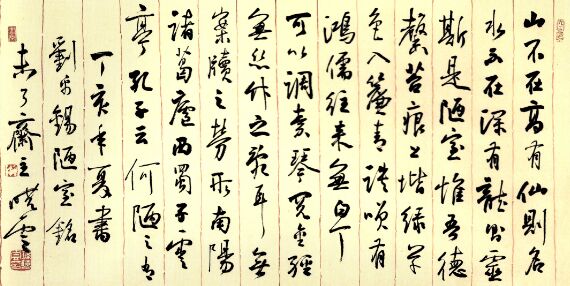 山不在高有仙則名
水不在深有龍則靈
斯是陋室惟吾德
馨苔痕上堦緑草
色入簾青談咲有
鴻儒往來無白丁
可以調素琴閱金經
無絲竹之亂耳無
案牘之勞形南陽
諸葛廬西蜀子雲
亭孔子云何陋之有
丁亥年夏書
劉禹錫陋室銘
未了齋主曉雲